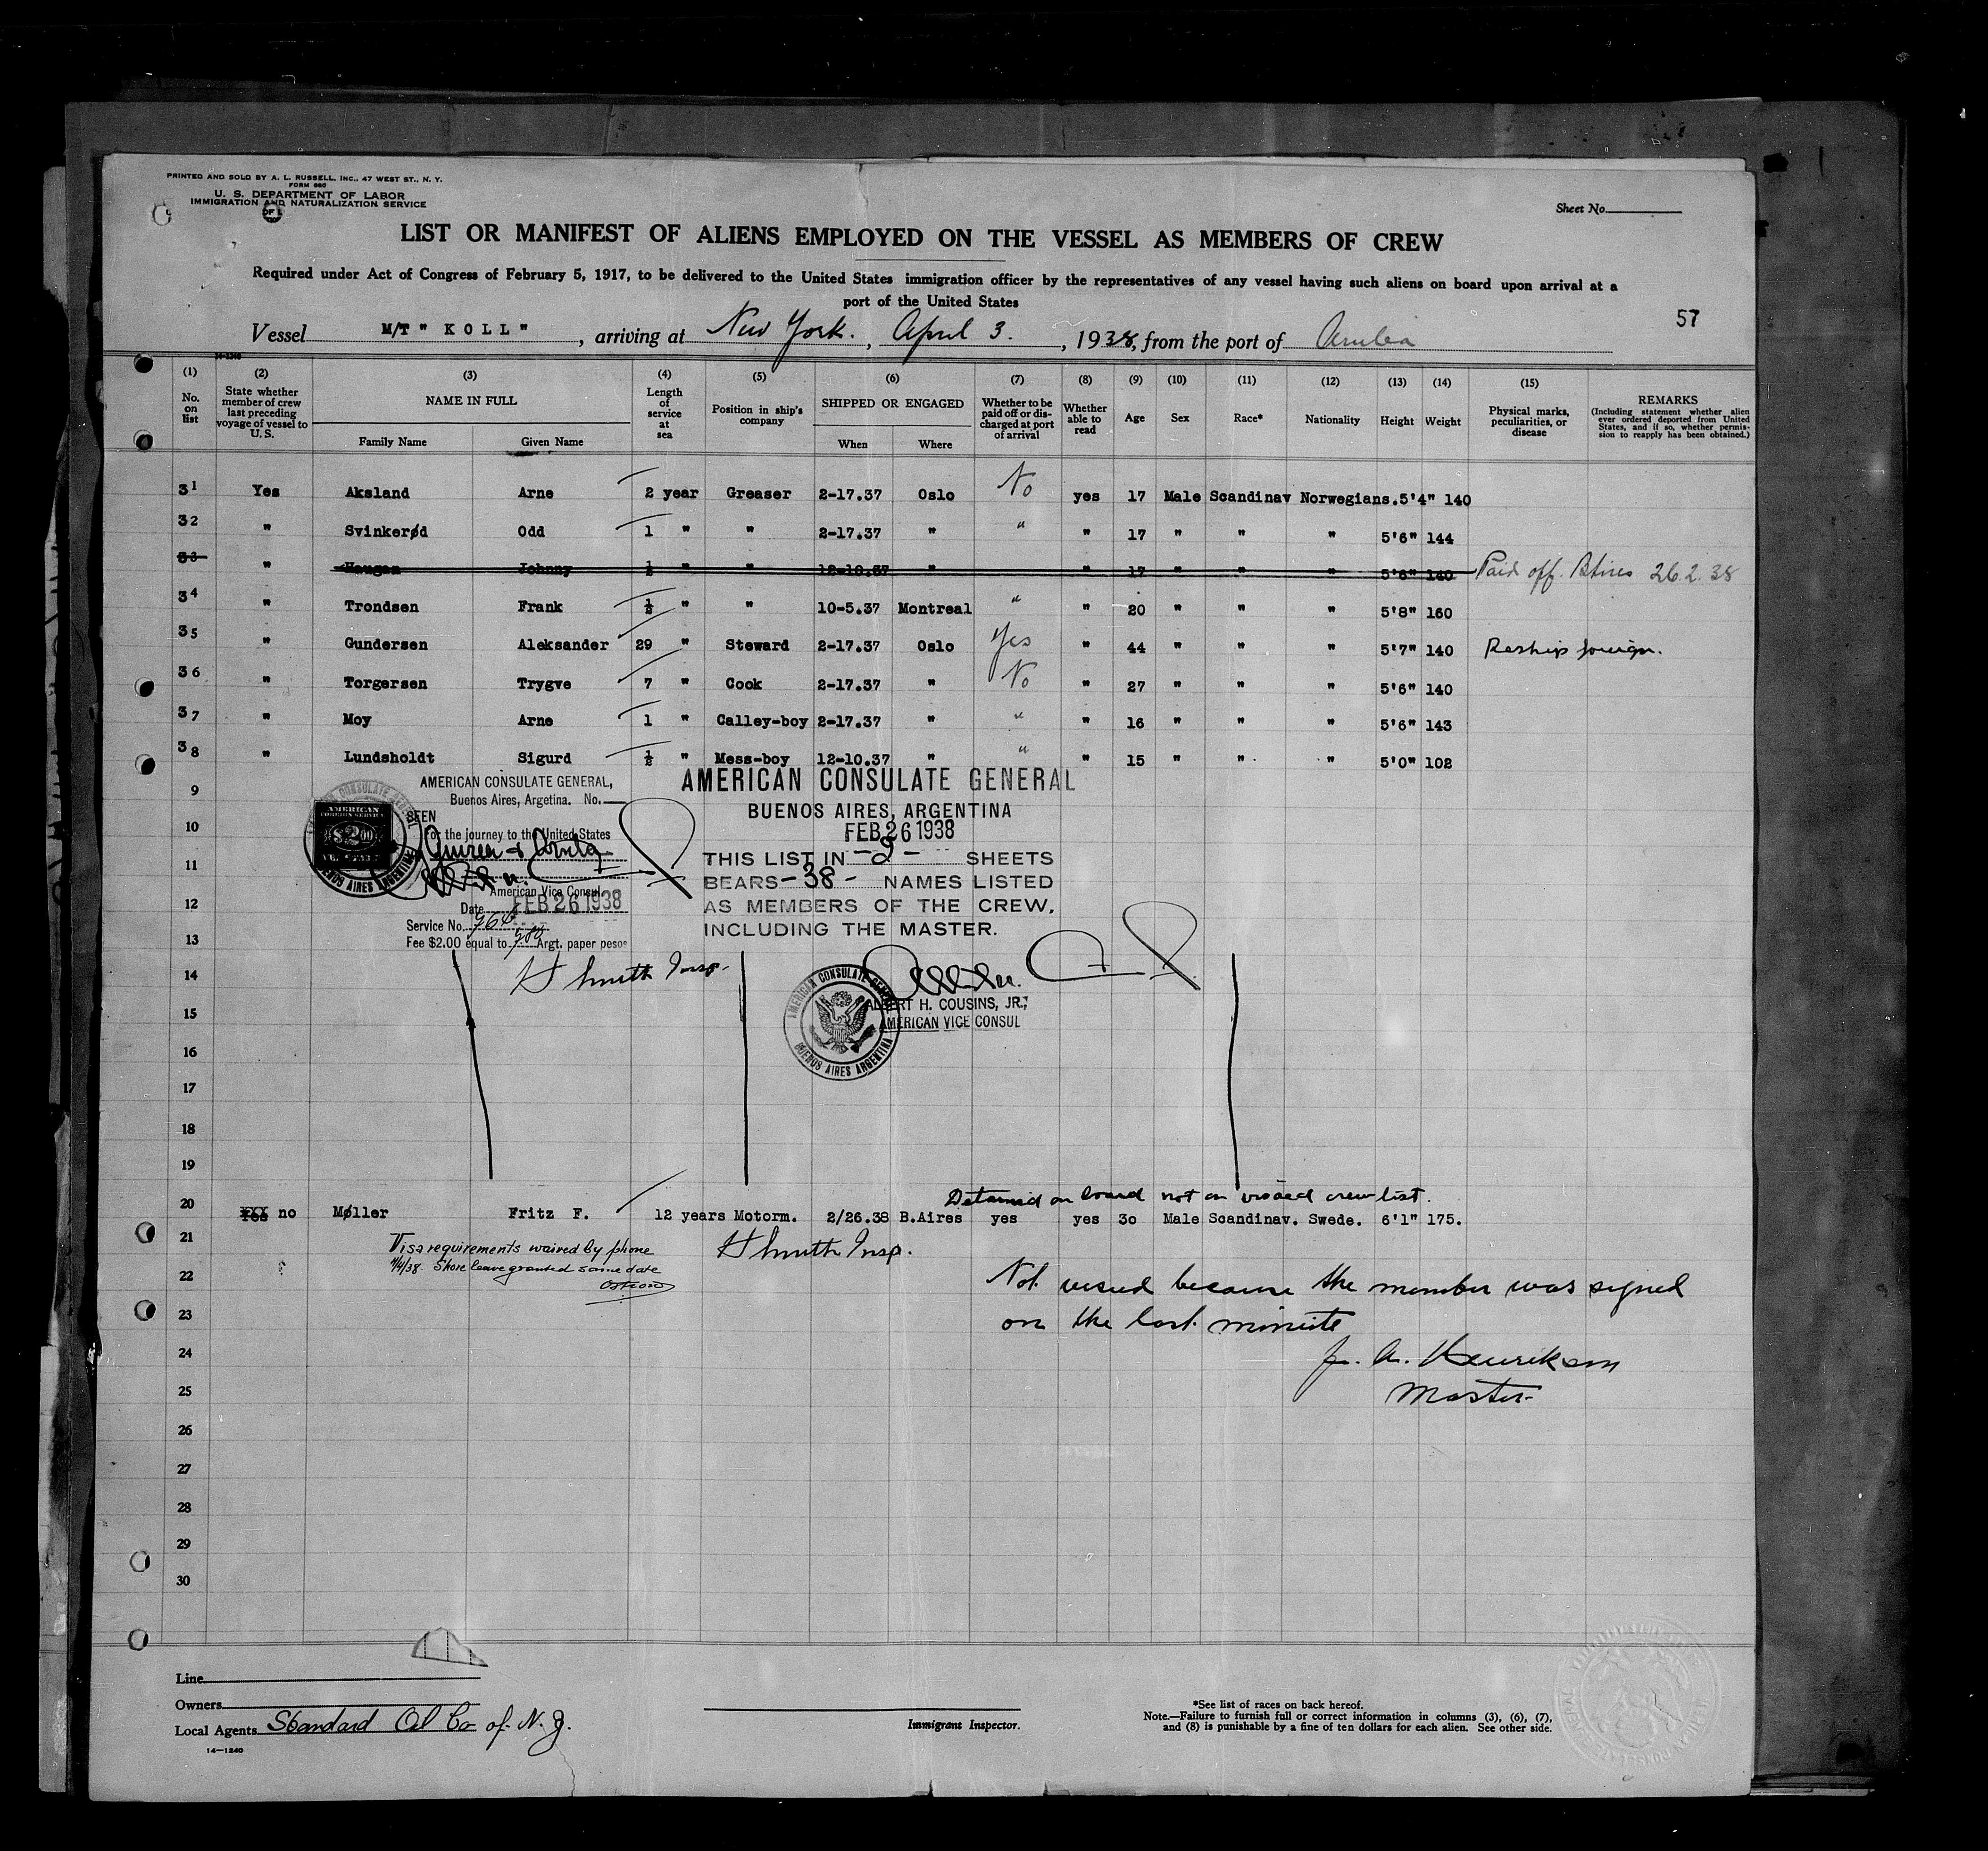 PRINTED AND SOLD BY A. L. RUSSELL, INC., 47 WEST ST., N. Y.
FORM 680
U. S. DEPARTMENT OF LABOR
IMMIGRATION AND NATURALIZATION SERVICE
Sheet No.
LIST OR MANIFEST OF ALIENS EMPLOYED ON THE VESSEL AS MEMBERS OF CREW
Required under Act of Congress of February 5, 1917, to be delivered to the United States immigration officer by the representatives of any vessel having such aliens on board upon arrival at a
port of the United States
57
Vessel M/T " K O L L " , arriving at New York. , April 3. , 1938, from the port of Aruba
14-1240
(1) (2) (3) (4) (5) (6) (7) (8) (9) (10) (11) (12) (13) (14) (15)
No. on list
State whether member of crew last preceding voyage of vessel to U. S.
NAME IN FULL
Family Name Given Name
Length of service at sea
Position in ship's company
SHIPPED OR ENGAGED
When Where
Whether to be paid off or discharged at port of arrival
Whether able to read
Age
Sex
Race*
Nationality
Height
Weight
Physical marks, peculiarities, or disease
REMARKS
(Including statement whether alien ever ordered deported from United States, and if so, whether permission to reapply has been obtained.)
31 Yes Aksland Arne 2 year Greaser 2-17.37 Oslo No yes 17 Male Scandinav Norwegians. 5'4" 140
32 " Svinkerød Odd 1 " " 2-17.37 " " " 17 " " " 5'6" 144
33 " Haugan Johnny ½ " " 12-10.37 " " 17 " " " 5'6" 140 Paid off. BAires 26.2.38
34 " Trondsen Frank ½ " " 10-5.37 Montreal " " 20 " " " 5'8" 160
35 " Gundersen Aleksander 29 " Steward 2-17.37 Oslo Yes " 44 " " " 5'7" 140 Reship foreign.
36 " Torgersen Trygve 7 " Cook 2-17.37 " No " 27 " " " 5'6" 140
37 " Moy Arne 1 " Calley-boy 2-17.37 " " " 16 " " " 5'6" 143
38 " Lundsholdt Sigurd ½ " Mess-boy 12-10.37 " " " 15 " " " 5'0" 102
AMERICAN CONSULATE GENERAL,
Buenos Aires, Argetina. No.
SEEN
For the journey to the United States
American Vice Consul
Date FEB 26 1938
Service No. 964
Fee $2.00 equal to Argt. paper pesos
AMERICAN
FOREIGN SERVICE
$2.00
BUENOS AIRES ARGENTINA
AMERICAN CONSULATE GENERAL
BUENOS AIRES, ARGENTINA
FEB 26 1938
THIS LIST IN -2- SHEETS
BEARS -38- NAMES LISTED
AS MEMBERS OF THE CREW,
INCLUDING THE MASTER.
H Smith Insp.
ALBERT H. COUSINS, JR.,
AMERICAN VICE CONSUL
AMERICAN CONSULATE GENERAL
BUENOS AIRES ARGENTINA
9
10
11
12
13
14
15
16
17
18
19
Detained on board not on visaed crew list.
20 Yes no Møller Fritz F. 12 years Motorm. 2/26.38 B.Aires yes yes 30 Male Scandinav. Swede. 6'1" 175.
21
Visa requirements waived by phone
4/4/38. Shore leave granted same date
H Smith Insp.
22
Not visued because the member was signed
23
on the last minute
24
Henriksen
25
Master
26
27
28
29
30
Line
Owners
Local Agents Standard Oil Co of N. J.
14-1240
Immigrant Inspector.
*See list of races on back hereof.
Note.—Failure to furnish full or correct information in columns (3), (6), (7),
and (8) is punishable by a fine of ten dollars for each alien. See other side.